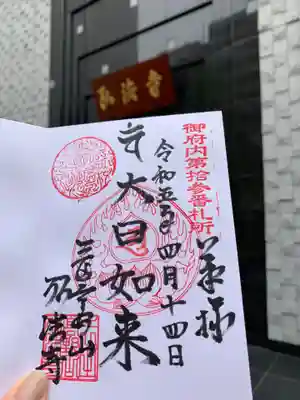 弘法寺
御府内第拾参番札所
奉拝
令和五年四月十四日
大日如来
弘法寺